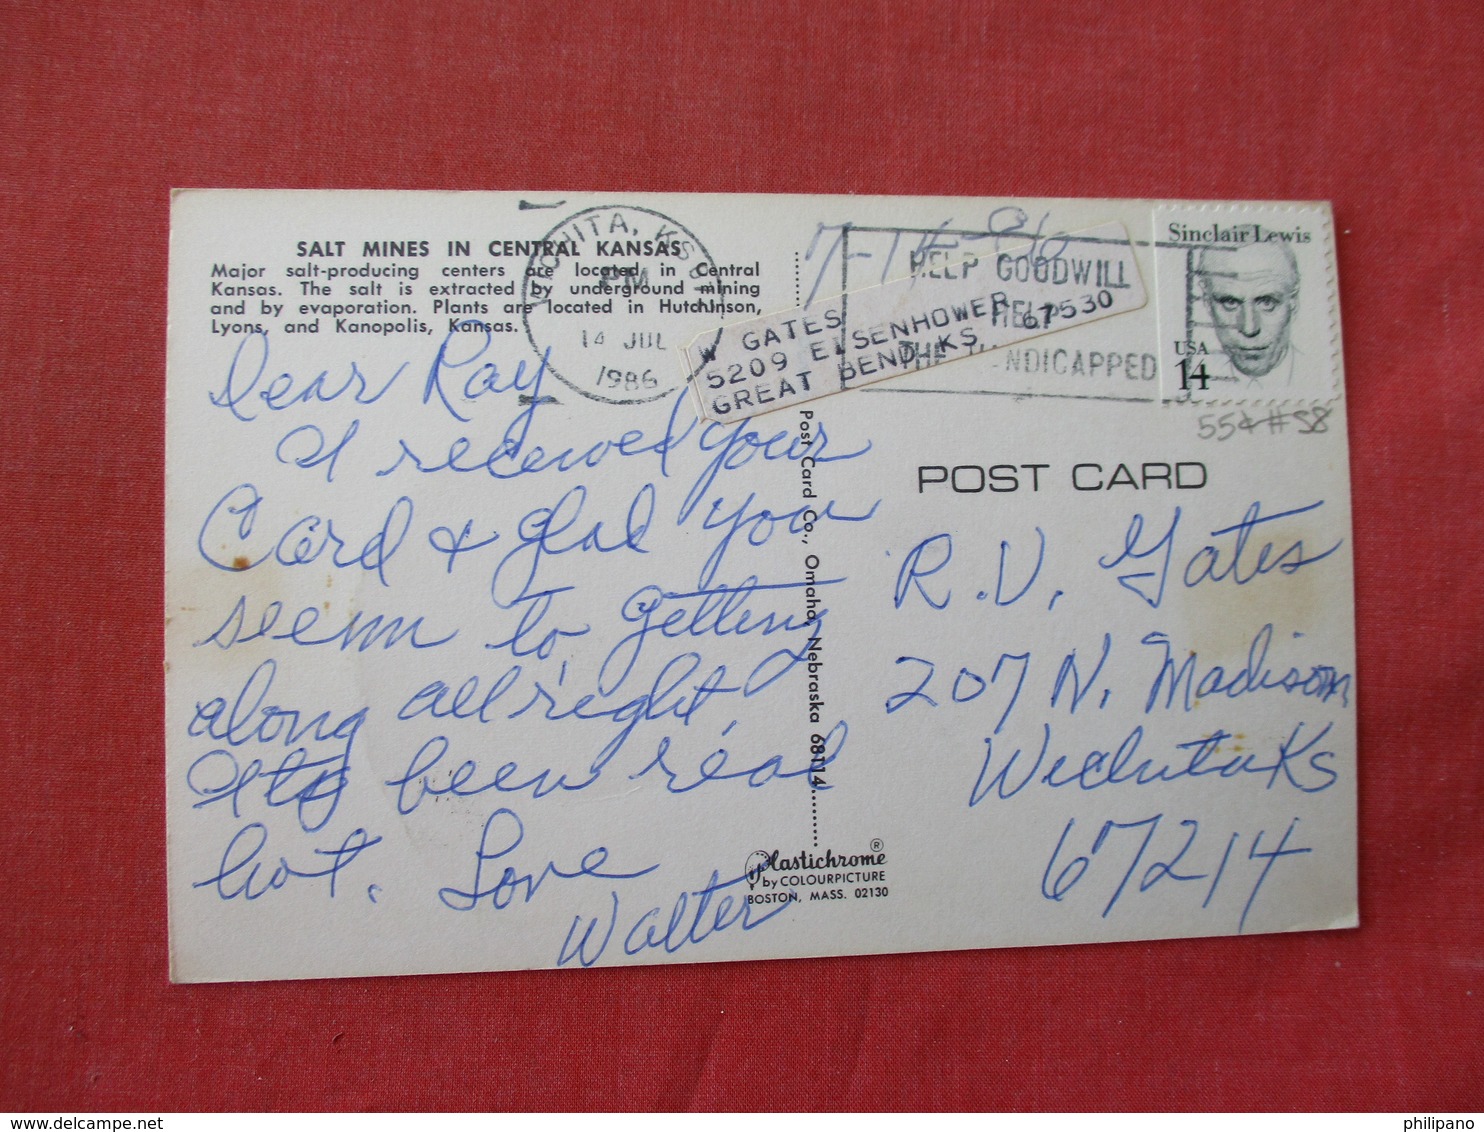 SALT MINES IN CENTRAL KANSAS
Major salt-producing centers are located in Central
Kansas. The salt is extracted by underground mining
and by evaporation. Plants are located in Hutchinson,
Lyons, and Kanopolis, Kansas.
WICHITA, KS
PM
14 JUL
1986
7-14-86
HELP GOODWILL
HELP
THE HANDICAPPED
W GATES
5209 EISENHOWER
GREAT BEND, KS 67530
Sinclair Lewis
USA
14
55¢ # 58
Dear Ray
I received your
Card & glad you
seem to getting
along all right,
Its been real
hot. Love
Walter
Post Card Co., Omaha, Nebraska 68114
POST CARD
R.V. Gates
207 N. Madison
Wichita Ks
67214
Plastichrome ®
by COLOURPICTURE
BOSTON, MASS. 02130
delcampe.net
philipano